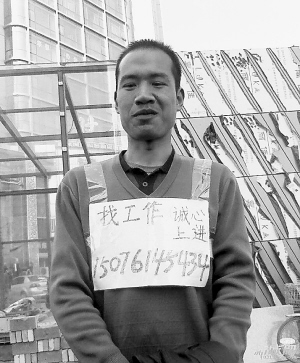 找工作 诚心
上进
15076145434